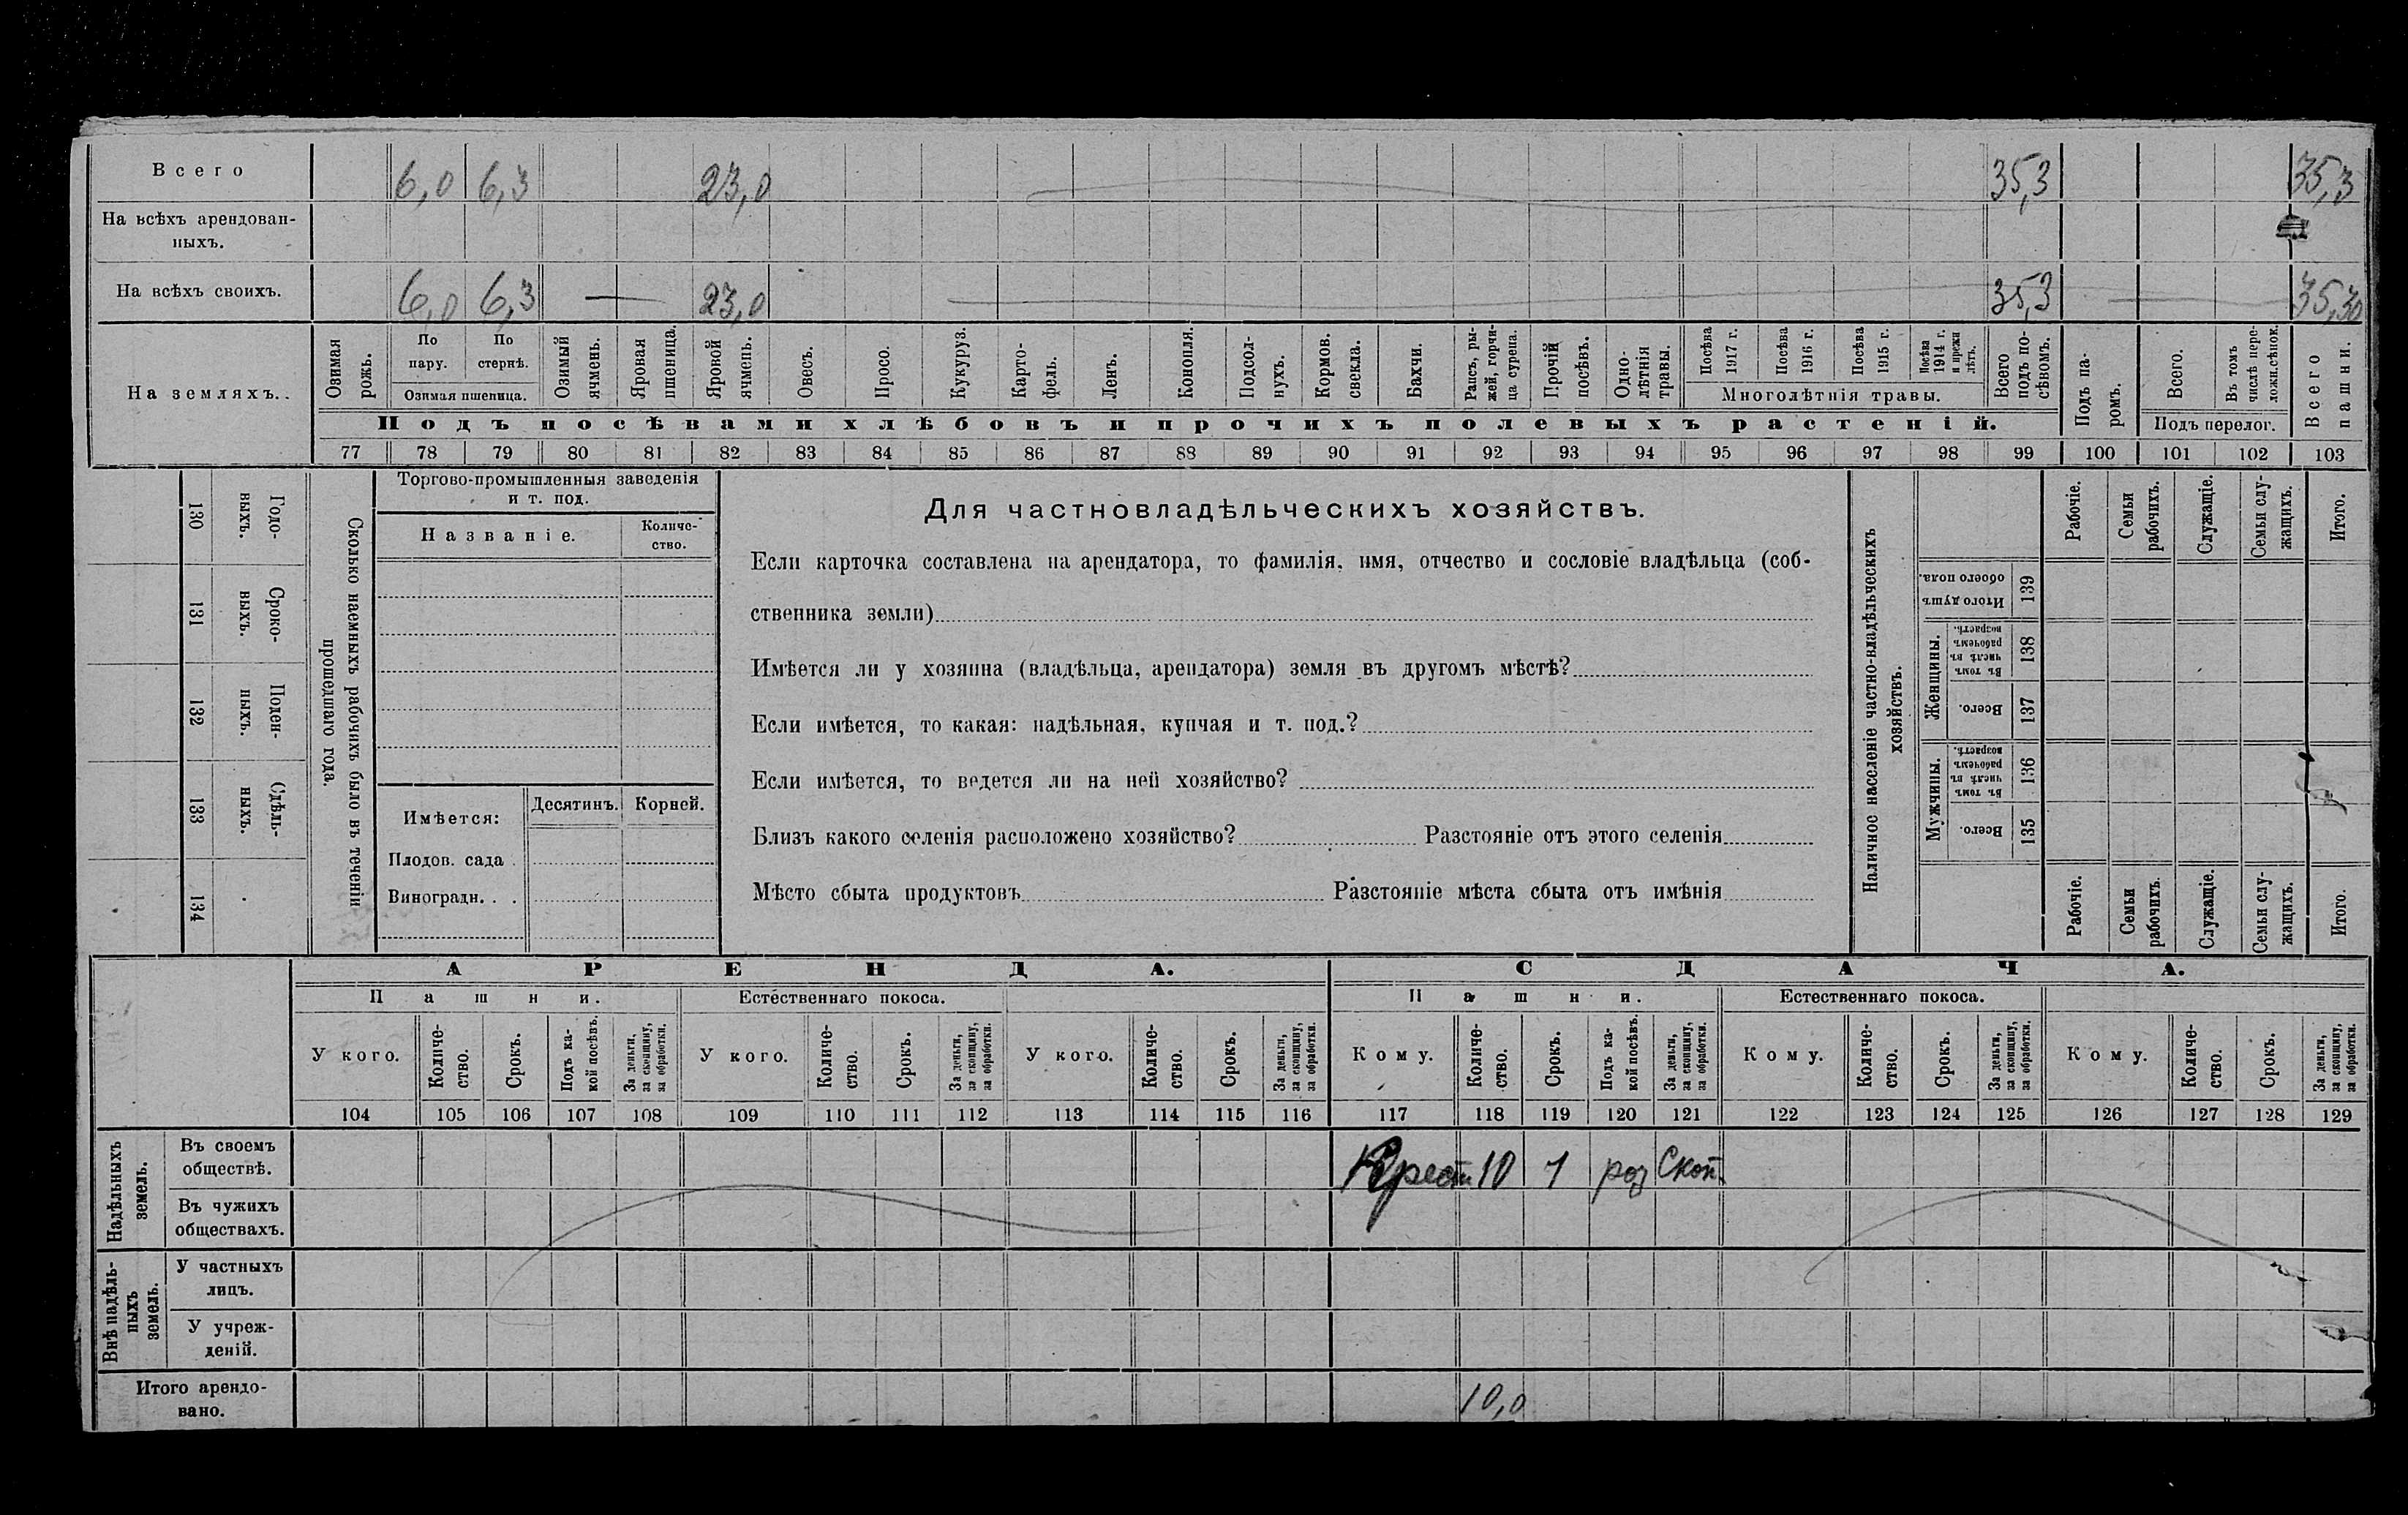 Всего 6,0 6,3 23,0 35,3 35,3
На всѣхъ арендован-
ныхъ.
На всѣхъ своихъ. 6,0 6,3 — 23,0 35,3 35,30
На земляхъ.
Озимая рожь.
По пару.
По стернѣ.
Озимая пшеница.
Озимый ячмень.
Яровая пшеница.
Яровой ячмень.
Овесъ.
Просо.
Кукуруз.
Карто-
фель.
Ленъ.
Конопля.
Подсол-
нухъ.
Кормов.
свекла.
Бахчи.
Рапсъ, ры-
жей, горчи-
ца сурепа.
Прочій
посѣвъ.
Одно-
лѣтнія
травы.
Посѣва
1917 г.
Посѣва
1916 г.
Посѣва
1915 г.
Посѣва
1914 г.
и прежн
лѣтъ.
Многолѣтнія травы.
Всего
подъ по-
сѣвомъ.
Подъ па-
ромъ.
Всего.
Въ томъ
числѣ пере-
ложн.сѣнок.
Подъ перелог.
Всего
пашни.
Подъ посѣвами хлѣбовъ и прочихъ полевыхъ растеній.
77 78 79 80 81 82 83 84 85 86 87 88 89 90 91 92 93 94 95 96 97 98 99 100 101 102 103
Годо-
выхъ.
130
Сроко-
выхъ.
131
Поден-
ныхъ.
132
Сдѣль-
ныхъ.
133
134
Сколько наемныхъ рабочихъ было въ теченіи
прошедшаго года.
Торгово-промышленныя заведенія
и т. под.
Названіе.
Количе-
ство.
Имѣется:
Десятинъ.
Корней.
Плодов. сада .
Виноградн. . .
Для частновладѣльческихъ хозяйствъ.
Если карточка составлена на арендатора, то фамилія, имя, отчество и сословіе владѣльца (соб-
ственника земли)
Имѣется ли у хозяина (владѣльца, арендатора) земля въ другомъ мѣстѣ?
Если имѣется, то какая: надѣльная, купчая и т. под.?
Если имѣется, то ведется ли на ней хозяйство?
Близъ какого селенія расположено хозяйство? Разстояніе отъ этого селенія
Мѣсто сбыта продуктовъ Разстояніе мѣста сбыта отъ имѣнія
Наличное населеніе частно-владѣльческихъ
хозяйствъ.
Рабочіе.
Семьи
рабочихъ.
Служащіе.
Семьи слу-
жащихъ.
Итого.
Итого душъ
обоего пола.
139
Женщины.
Въ томъ
числѣ въ
рабочемъ
возрастѣ.
138
Всего.
137
Мужчины.
Въ томъ
числѣ въ
рабочемъ
возрастѣ.
136
Всего.
135
Рабочіе.
Семьи
рабочихъ.
Служащіе.
Семьи слу-
жащихъ.
Итого.
АРЕНДА. СДАЧА.
Пашни. Естественнаго покоса. Пашни. Естественнаго покоса.
У кого.
Количе-
ство.
Срокъ.
Подъ ка-
кой посѣвъ.
За деньги,
за скопщину,
за обработки.
У кого.
Количе-
ство.
Срокъ.
За деньги,
за скопщину,
за обработки.
У кого.
Количе-
ство.
Срокъ.
За деньги,
за скопщину,
за обработки.
Кому.
Количе-
ство.
Срокъ.
Подъ ка-
кой посѣвъ.
За деньги,
за скопщину,
за обработки.
Кому.
Количе-
ство.
Срокъ.
За деньги,
за скопщину,
за обработки.
Кому.
Количе-
ство.
Срокъ.
За деньги,
за скопщину,
за обработки.
104 105 106 107 108 109 110 111 112 113 114 115 116 117 118 119 120 121 122 123 124 125 126 127 128 129
Надѣльныхъ
земель.
Въ своемъ
обществѣ.
10 1 Скоп.
Въ чужихъ
обществахъ.
Внѣ надѣль-
ныхъ
земель.
У частныхъ
лицъ.
У учреж-
деній.
Итого арендо-
вано.
10,0